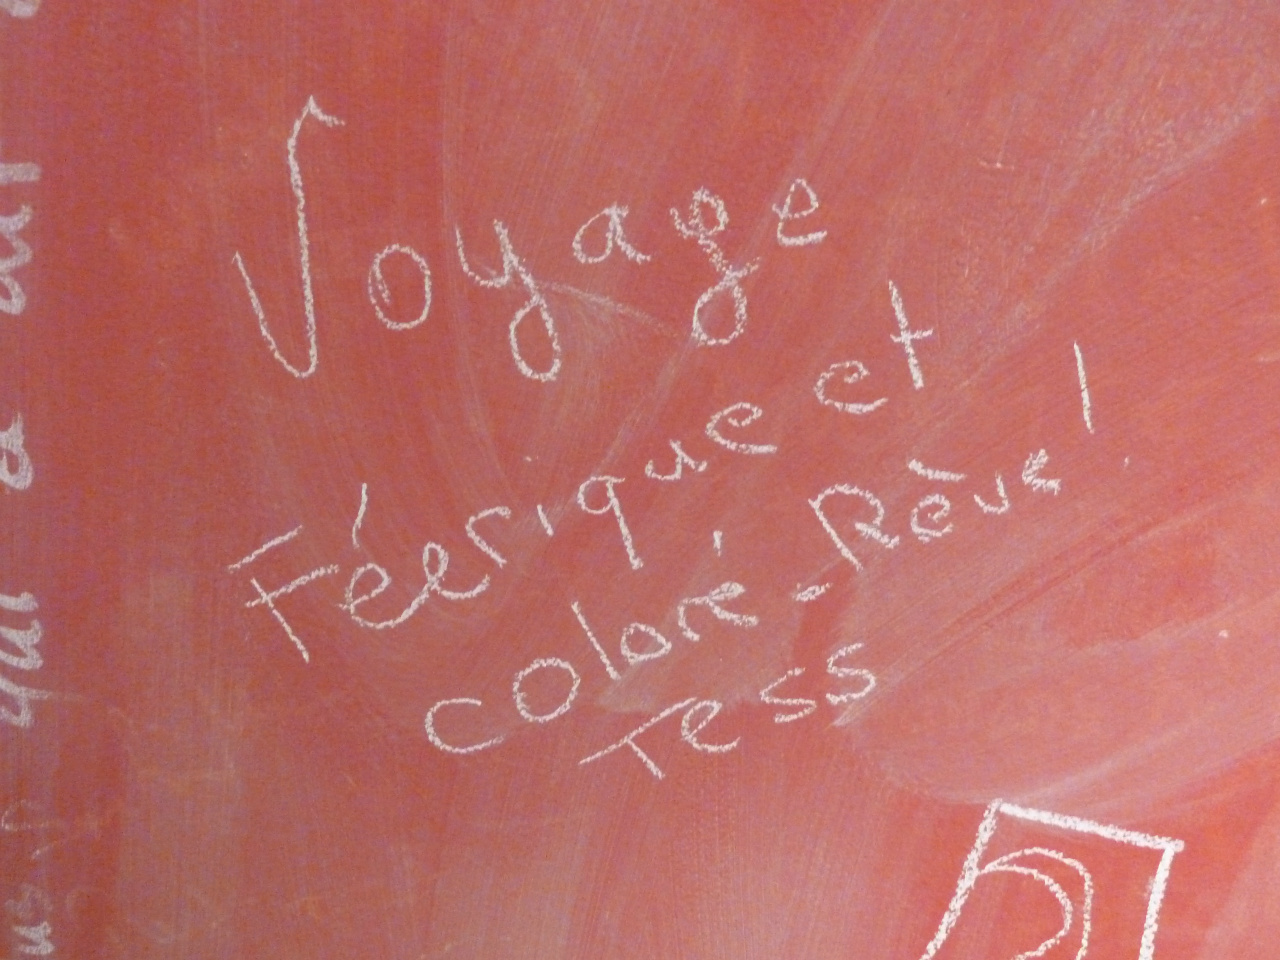 Voyage
Féerique et
coloré - Rêve!
Tess